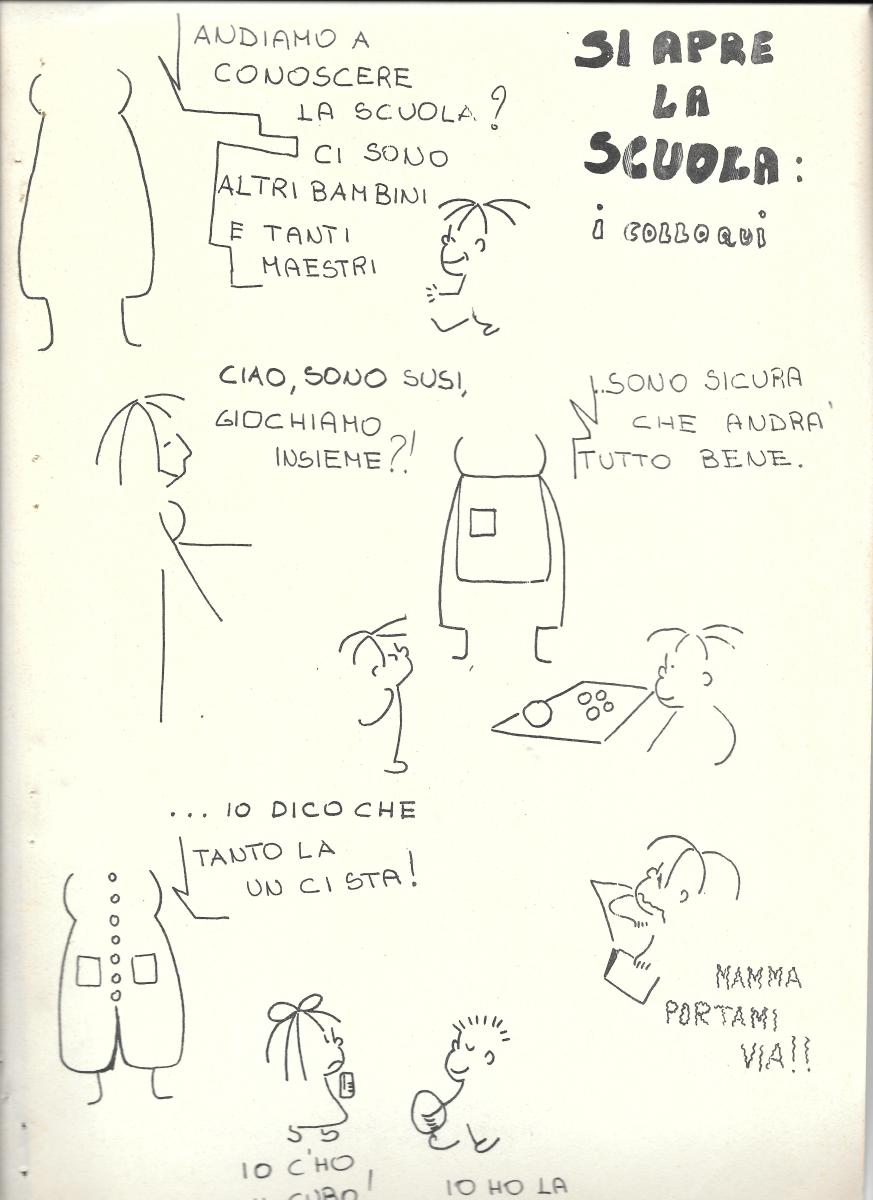 SI APRE
LA
SCUOLA:
i COLLOQUI
ANDIAMO A
CONOSCERE
LA SCUOLA?
CI SONO
ALTRI BAMBINI
E TANTI
MAESTRI
CIAO, SONO SUSI,
GIOCHIAMO
INSIEME?!
...SONO SICURA
CHE ANDRA'
TUTTO BENE.
... IO DICO CHE
TANTO LA
UN CI STA!
MAMMA
PORTAMI
VIA!!
IO C'HO
CUBO!
IO HO LA